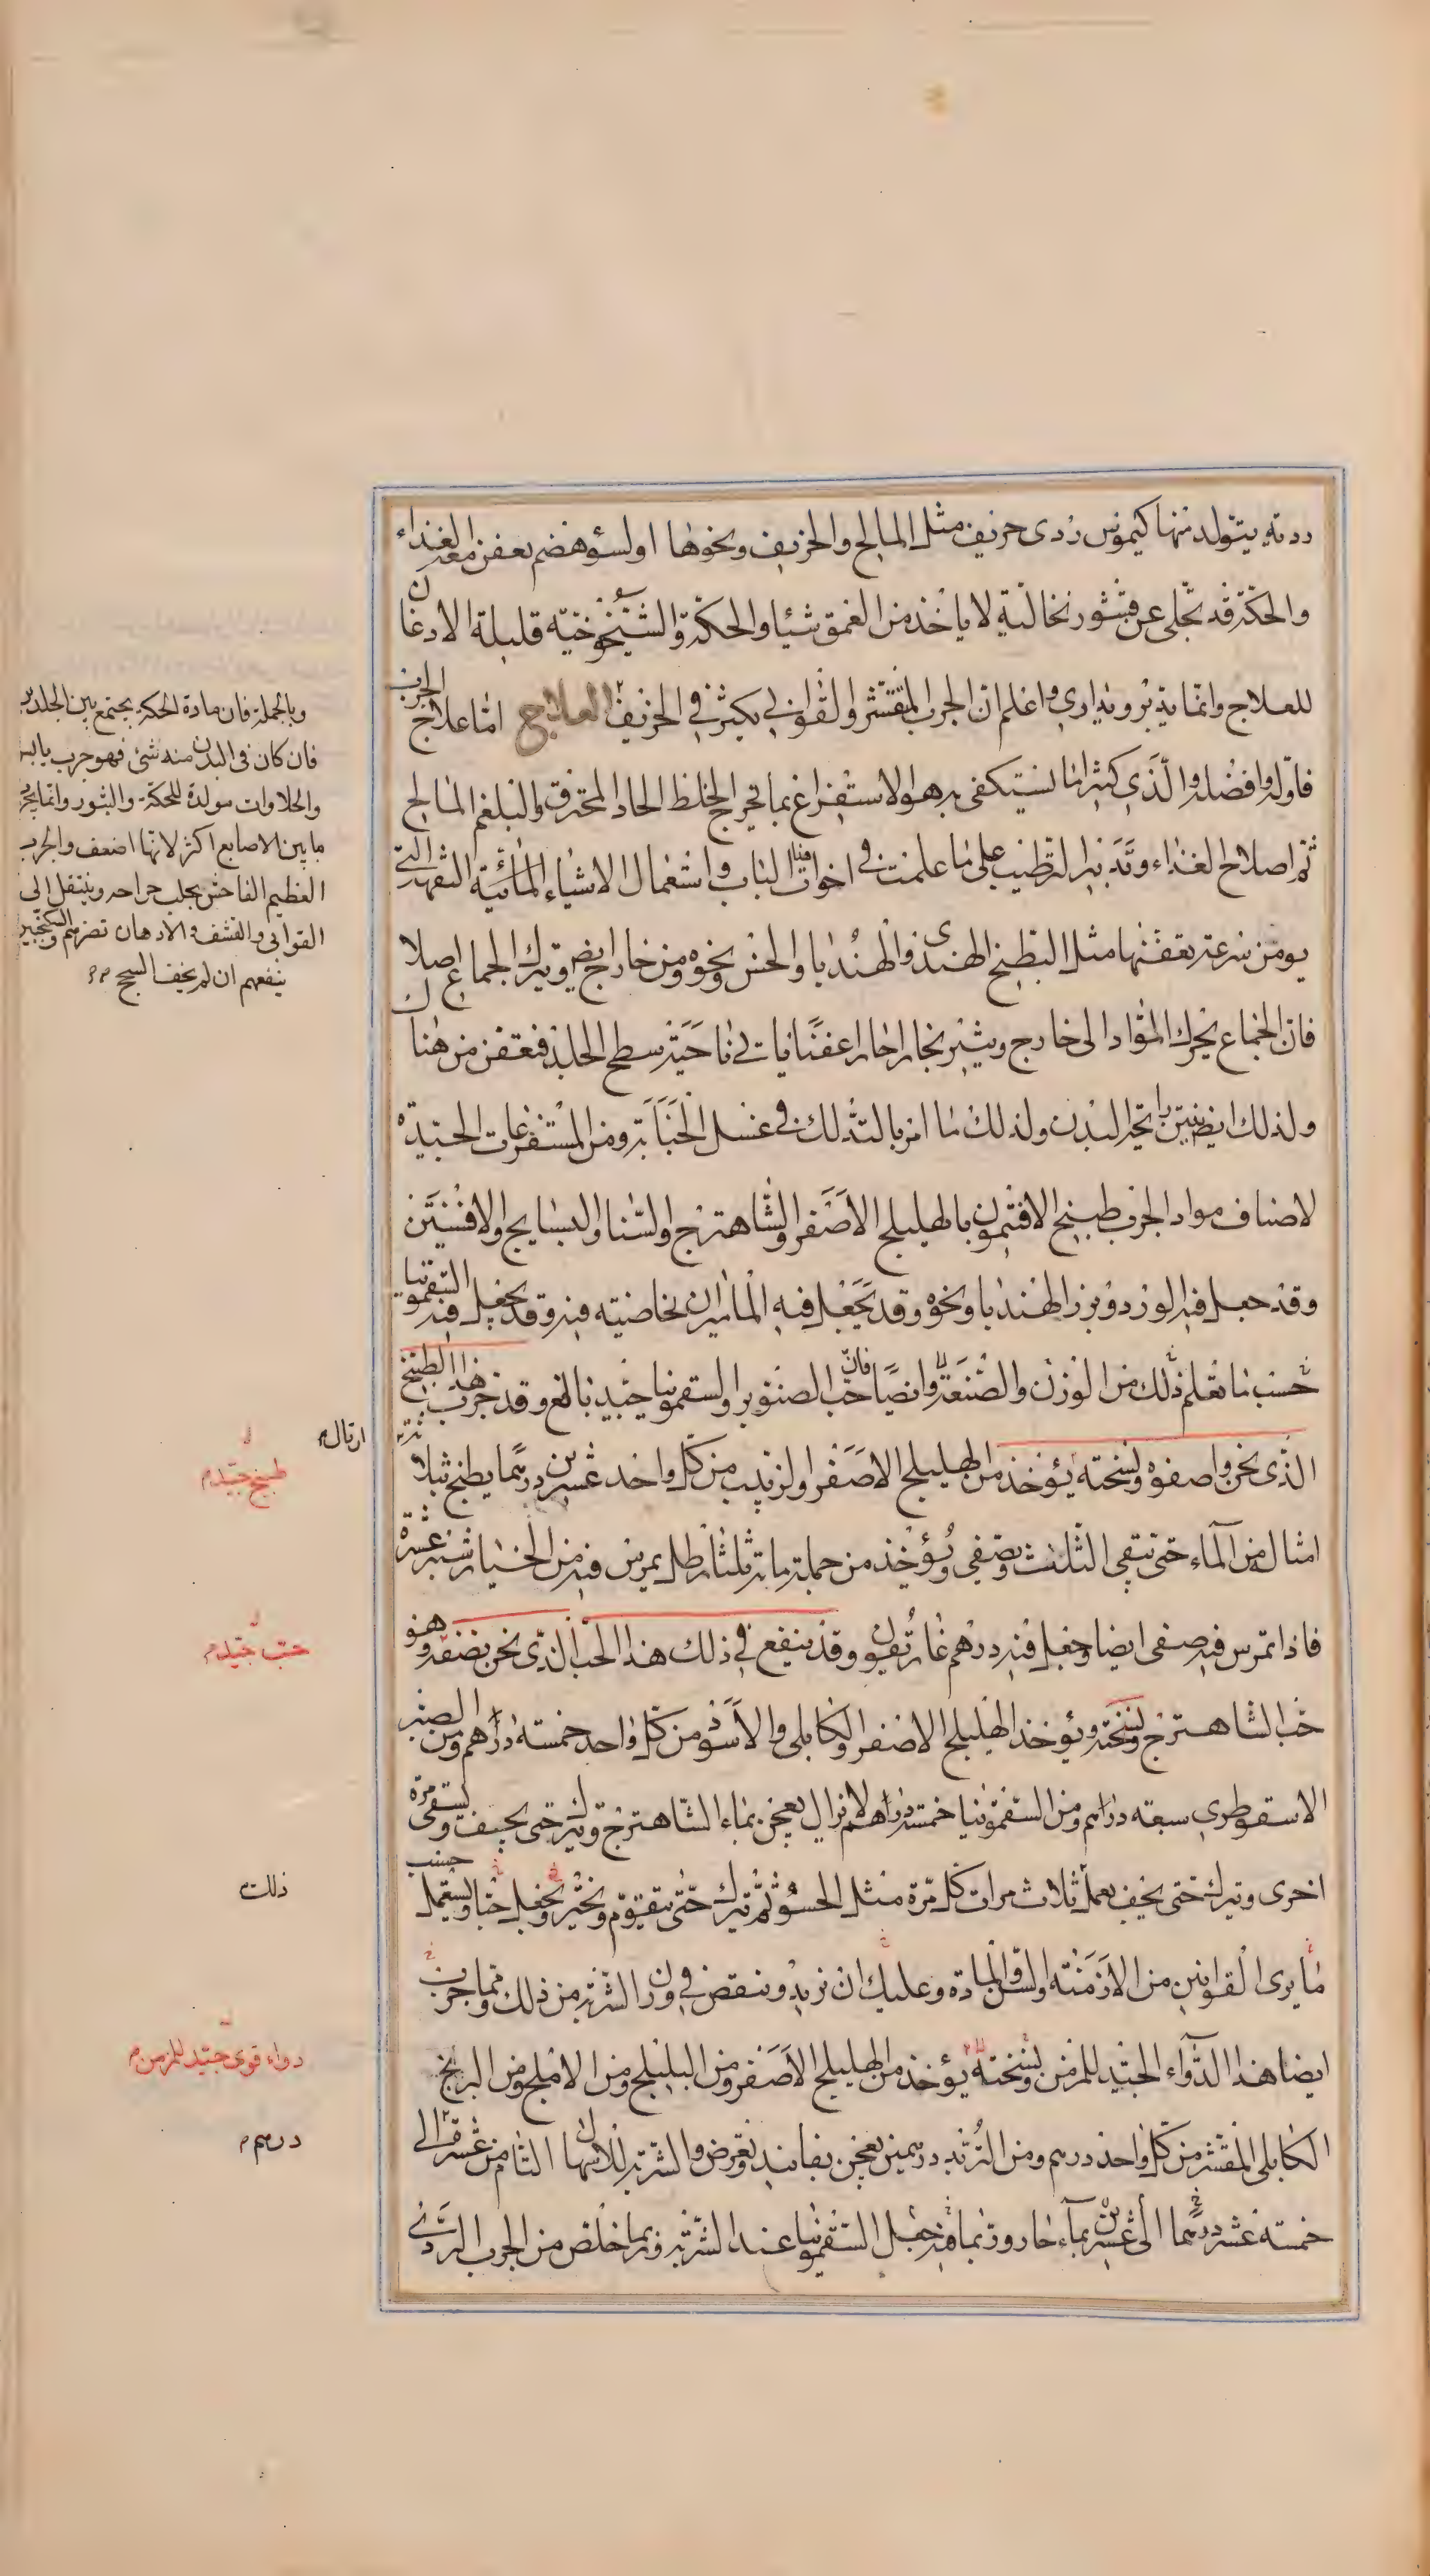 ردية يتولد منها كيموس ردى حريف مثل المالح والحريف ونحوها او لسوء هضم يعفن معه الغذاء
والحكة قد تجلى عن قشور نخالية لا ياخذ من العمق شيئا والحكة الشيخوخية قليلة الاذعان
للعلاج وانما يدبر ويدارى واعلم ان الجرب المتقشر والقوابى يكثر فى الخريف العلاج اما علاج الجرب
فاوله وافضله والذى كثيرا ما يستكفى به هو الاستفراغ بما يخرج الخلط الحاد المحترق والبلغم المالح
ثم اصلاح الغذاء وتدبير الترطيب على ما علمت فى اخوات هذا الباب واستعمال الاشياء المائية التفهة التى
يومن سرعة تعفنها مثل البطيخ الهندى والهندبا والخس ونحوه ومن خارج ايض ويترك الجماع اصلا
فان الجماع يحرك المواد الى خارج ويثير بخارا حارا عفنا ياتى ناحية سطح الجلد فتعفن من هناك
ولذلك ايض ينتن رايحة البدن ولذلك ما امر بالتدلك فى غسل الجنابة ومن المستفرغات الجيدة
لاصناف مواد الجرب طبيخ الافتيمون بالهليلج الاصفر والشاهترج والسنا والبسايج والافسنتين
وقد جعل فيه الورد وبزر الهندبا ونحوه وقد يجعل فيه الماميران لخاصيته فيه وقد يجعل فيه السقمونيا
حسب ما تعلم ذلك من الوزن والصنعة وايضا فان حب الصنوبر والسقمونيا جيد بالغ وقد جرب هذا الطبيخ
الذى نحن واصفوه ونسخته يؤخذ من الهليلج الاصفر والزبيب من كل واحد عشرين درهما يطبخ بثلاثة
امثاله من الماء حتى تبقى الثلث ويصفى ويؤخذ من جملة مائه ثلثا رطل يمرس فيه من الخيار شنبر عشرة
فاذا تمرس فيه صفى ايضا وجعل فيه درهم غاريقون وقد ينفع فى ذلك هذا الحب الذى نحن نصفه وهو
حب الشاهترج ونسخته ويؤخذ الهليلج الاصفر والكابلى والاسود من كل واحد خمسة دراهم ومن الصبر
الاسقوطرى سبعة دراهم ومن السقمونيا خمسة دراهم لا يزال يعجن بماء الشاهترج ويترك حتى يجف ويسقى مرة
اخرى ويترك حتى يجف يعمل ثلاث مرات كل مرة مثل الحسو ثم يترك حتى يتقوم ويخثر ويجعل حبا ويستعمل حسب
ما يرى القوانين من الازمنة والسن والمادة وعليك ان تزيد وتنقص فى وزن الشربة من ذلك ومما جرب
ايضا هذا الدواء الجيد للمزمن ونسخته يؤخذ من الهليلج الاصفر ومن البليلج ومن الاملج ومن البرنج
الكابلى المقشر من كل واحد درهم ومن التربد درهمين يعجن بفانيد ويقرض والشربة للاسهال التام من عشرة الى
خمسة عشر درهما الى عشرين بماء حار وربما فيه جعل السقمونيا عند الشربة وربما خلص من الجرب الردى
وبالجملة فان مادة الحكة يجتمع بين الجلدين
فان كان فى البدن منه شئ فهو جرب يابس
والحلاوات مولدة للحكة والبثور وانما يجرب
ما بين الاصابع اكثر لانها اضعف والجرب
العظيم الفاحش يجلب جراحه وينتقل الى
القوابى والقشف والادهان تضرهم والسكنجبين
ينفعهم ان لم يخف السحج
ارتال
طبيخ جيد
حب جيد
ذلك
دواء قوى جيد للمزمن
درهم